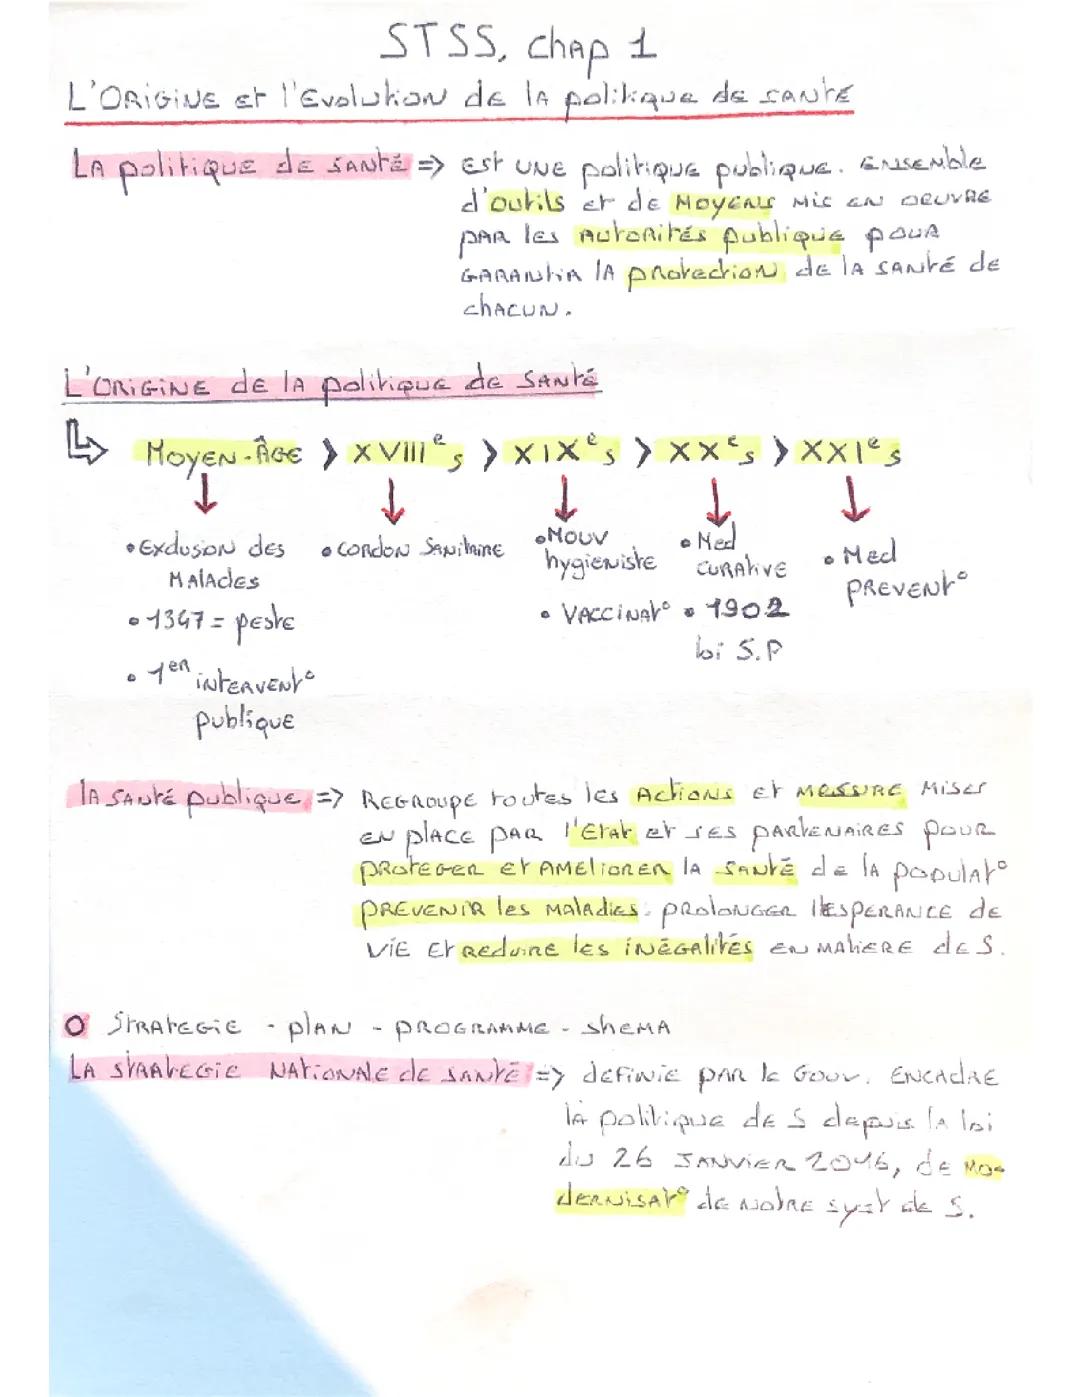 STSS, chap 1
L'ORIGINE et l'Evolution de la politique de santé
La politique de santé => est une politique publique. Ensemble
d'outils et de moyens mis en oeuvre
par les autorités publique pour
garantir la protection de la santé de
chacun.
L'ORIGINE de la politique de santé
↳ Moyen-Âge > XVIIIe s > XIXe s > XXe s > XXIe s
• Exclusion des malades
• 1347 = peste
• 1er intervent° publique
• Cordon sanitaire
• Mouv hygieniste
• Vaccinat°
• Med curative
• 1902 loi S.P
• Med prevent°
la santé publique => Regroupe toutes les actions et messure mises
en place par l'Etat et ses partenaires pour
proteger et ameliorer la santé de la populat°
prevenir les maladies. prolonger l'esperance de
vie et reduire les inégalités en matiere de S.
O Strategie - plan - programme - shema
La strategie nationale de santé => definie par le Gouv. Encadre
la politique de S depuis la loi
du 26 janvier 2016, de mo-
dernisat° de notre syst de S.